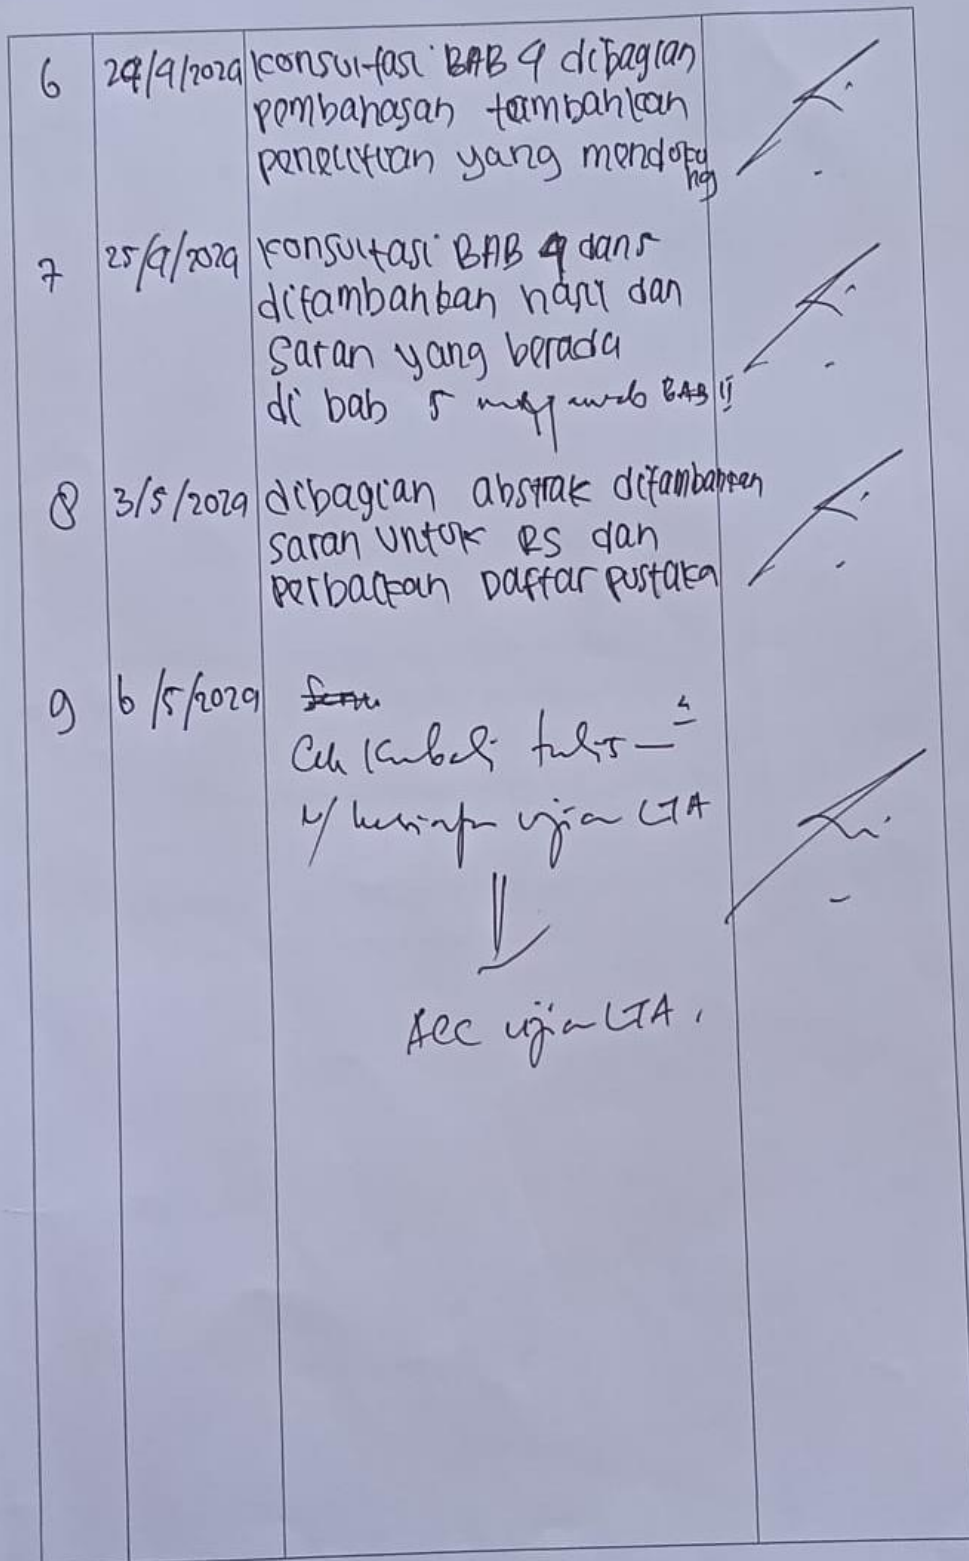 6 24/4/2024 Konsultasi BAB 4 dibagian
pembahasan tambahkan
penelitian yang mendukung
7 25/4/2024 Konsultasi BAB 4 dan 5
ditambahkan hasil dan
saran yang berada
di bab 5 BAB II
8 3/5/2024 dibagian abstrak ditambahkan
saran untuk RS dan
perbaikan Daftar pustaka
9 6/5/2024
Cek kembali tulis
u/ kesiapan ujian LTA
ACC ujian LTA.